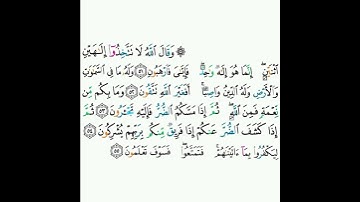 ۞ وَقَالَ اللَّهُ لَا تَتَّخِذُوا إِلَٰهَيْنِ
اثْنَيْنِ ۖ إِنَّمَا هُوَ إِلَٰهٌ وَاحِدٌ ۖ فَإِيَّايَ فَارْهَبُونِ ٥١ وَلَهُ مَا فِي السَّمَاوَاتِ
وَالْأَرْضِ وَلَهُ الدِّينُ وَاصِبًا ۚ أَفَغَيْرَ اللَّهِ تَتَّقُونَ ٥٢ وَمَا بِكُم مِّن
نِّعْمَةٍ فَمِنَ اللَّهِ ۖ ثُمَّ إِذَا مَسَّكُمُ الضُّرُّ فَإِلَيْهِ تَجْأَرُونَ ٥٣ ثُمَّ
إِذَا كَشَفَ الضُّرَّ عَنكُمْ إِذَا فَرِيقٌ مِّنكُم بِرَبِّهِمْ يُشْرِكُونَ ٥٤
لِيَكْفُرُوا بِمَا آتَيْنَاهُمْ ۚ فَتَمَتَّعُوا ۖ فَسَوْفَ تَعْلَمُونَ ٥٥